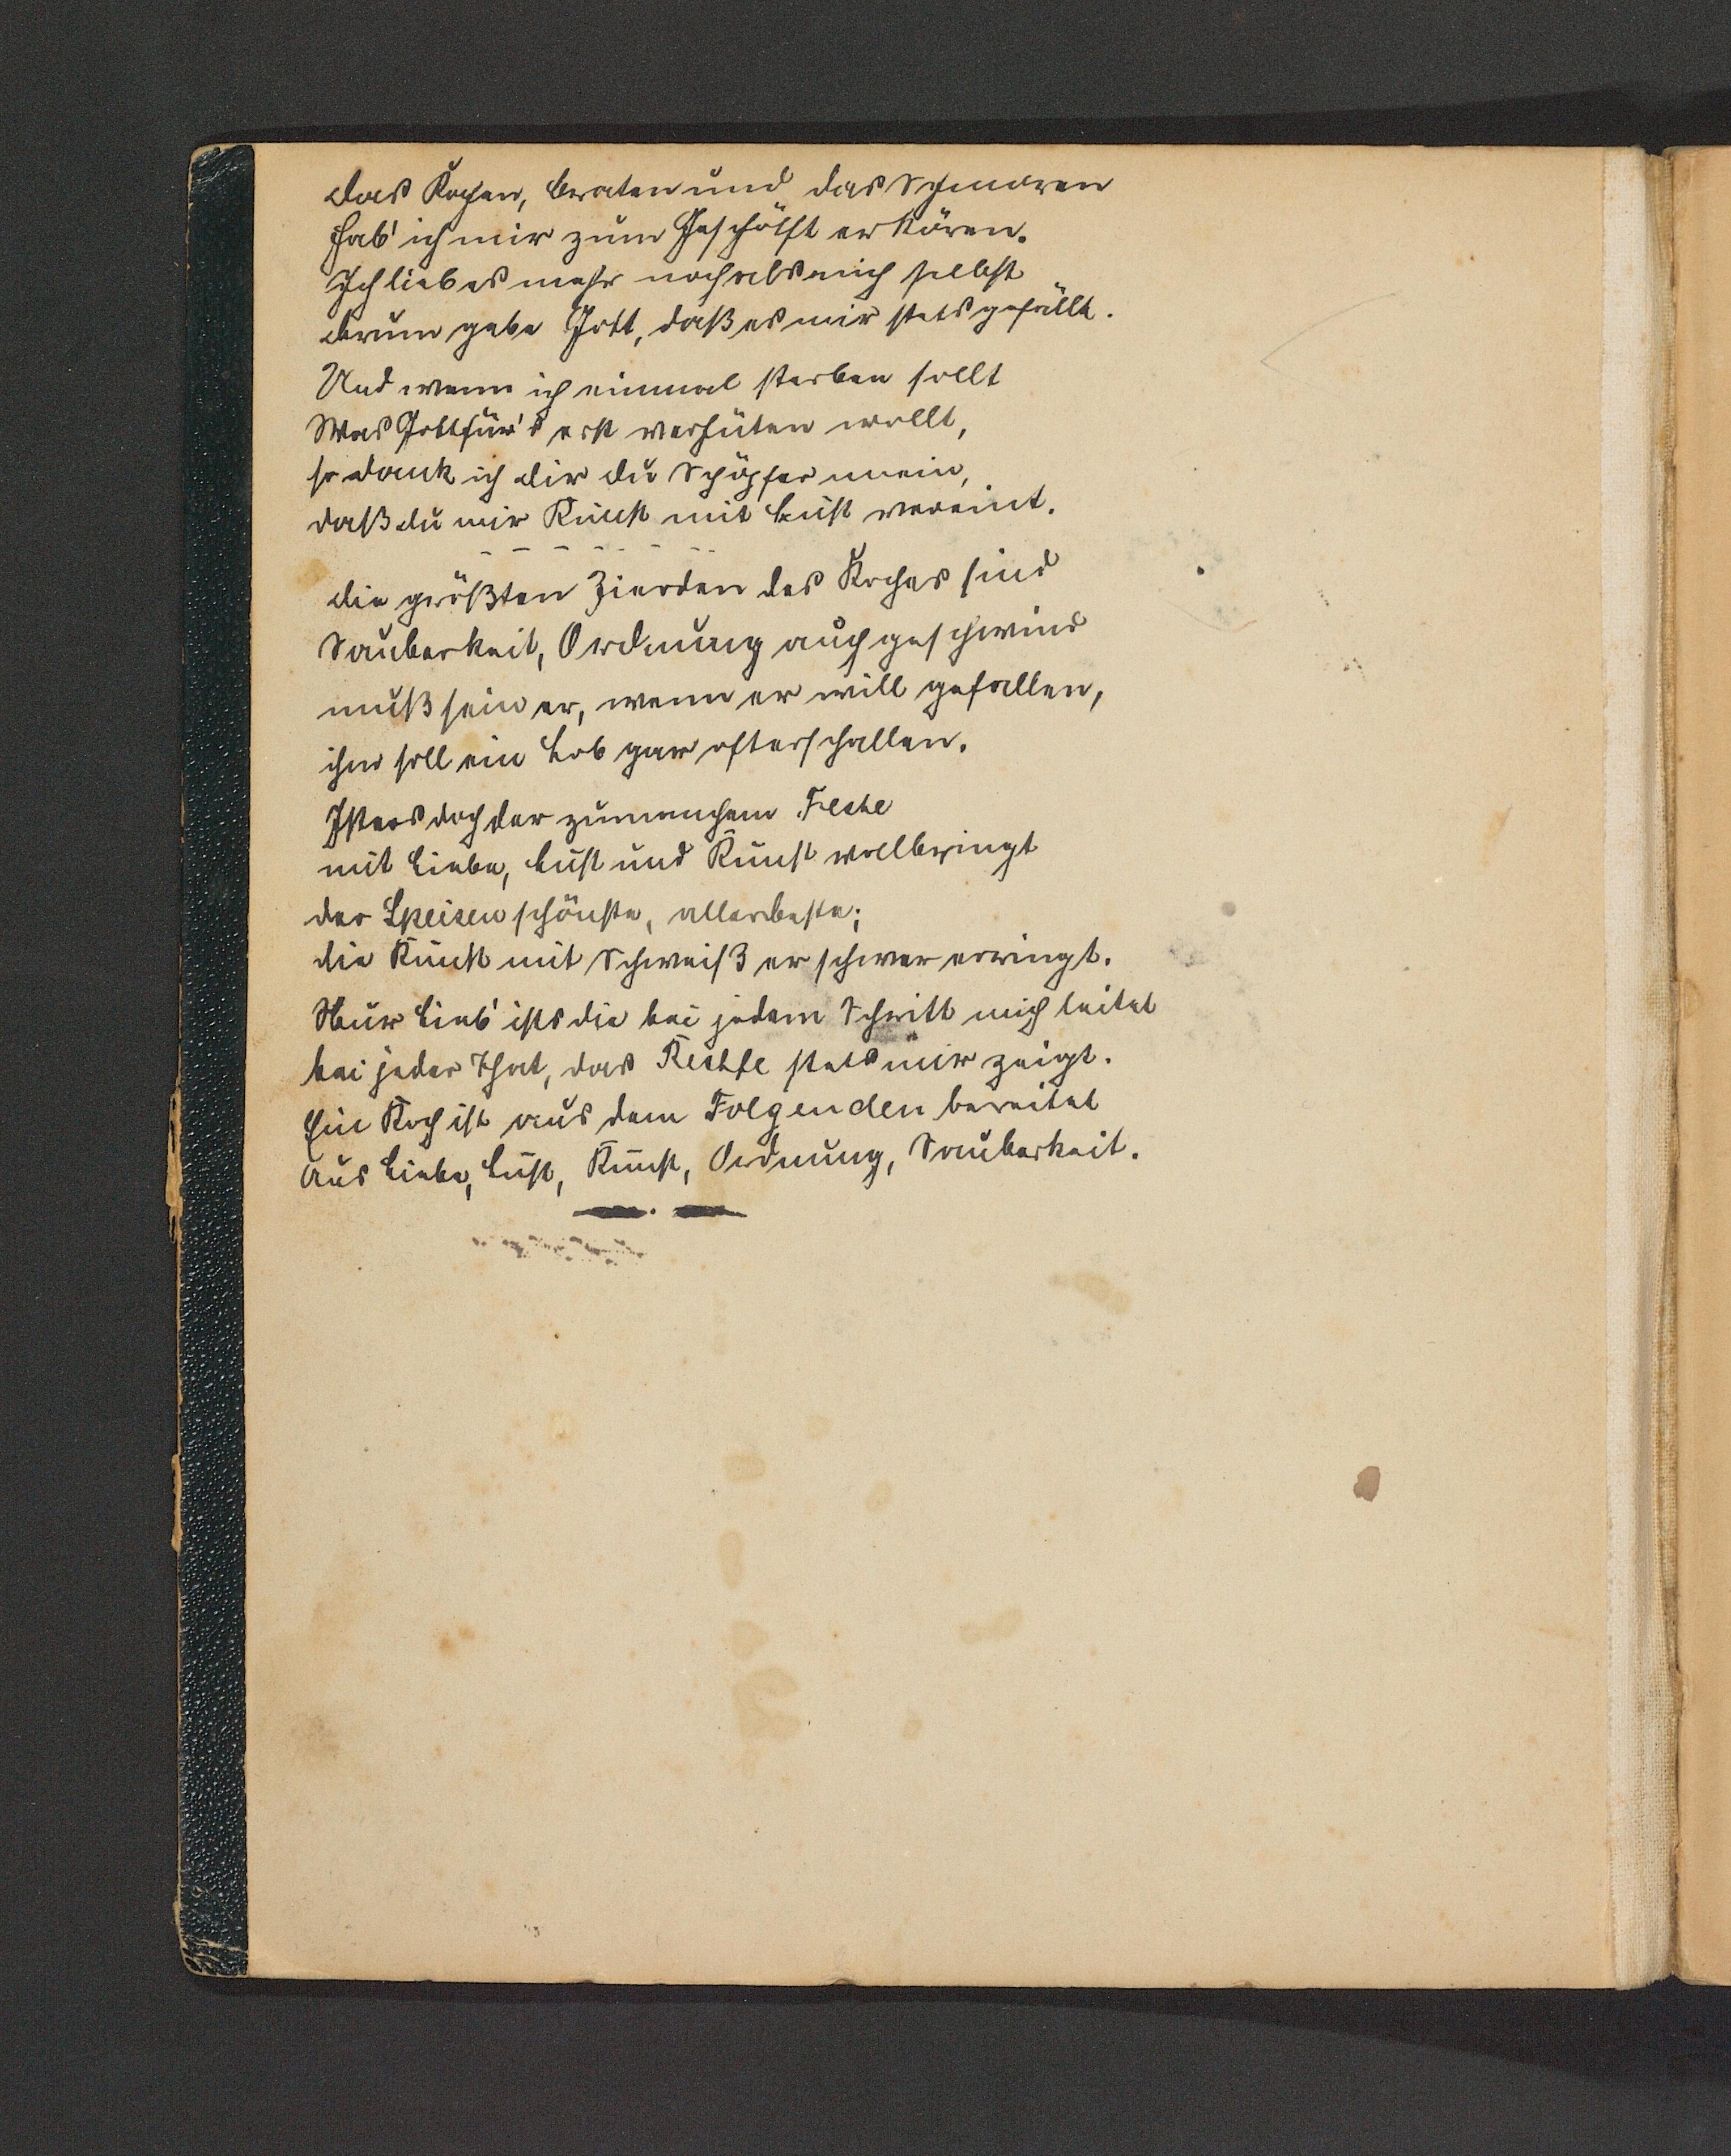 das Kochen, braten und das Schmoren
hab' ich mir zum Geschäfft erkören.
Ich lieb es mehr noch als mich selbst
drum gebe Gott, daß es mir stets gefällt.
Und wenn ich einmal sterben sollt
Was Gott für's erst verhüten wollt,
so dank ich dir du Schöpfer mein,
daß du mir Kunst mit Lust vereint.
die größten Zierden des Koches sind
Sauberkeit, Ordnung auch geschwind
muß sein er, wenn er will gefallen,
ihm soll ein Lob gar oft erschallen.
Ist er's doch der zu manchem Feste
mit Liebe, Lust und Kunst vollbringt
der Speisen schönste, allerbeste;
die Kunst mit Schweiß er schwer erringt.
Nur Lieb' ists die bei jedem Schritt mich leitet
bei jeder That, das Rechte stets mir zeigt.
Ein Koch ist aus dem Folgenden bereitet
Aus Liebe, Lust, Kunst, Ordnung, Sauberkeit.